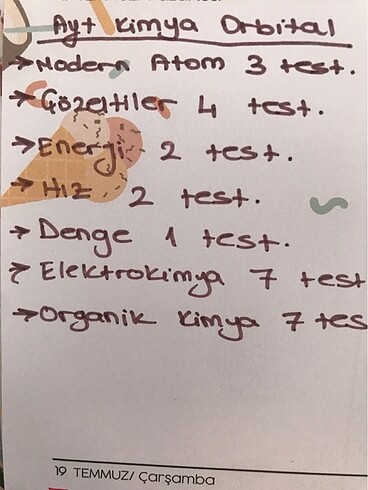 Ayt Kimya Orbital
→Modern Atom 3 test.
→Çözeltiler 4 test.
→Enerji 2 test.
→Hız 2 test.
→Denge 1 test.
→Elektrokimya 7 test
→Organik Kimya 7 tes
19 TEMMUZ/ Çarşamba